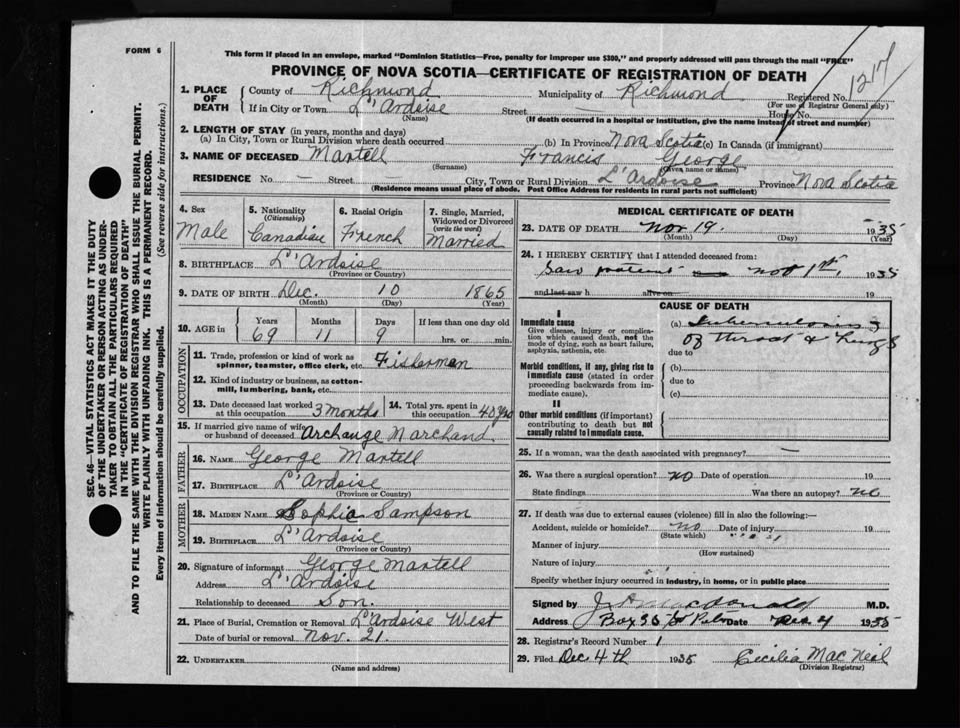 FORM 6
This form if placed in an envelope, marked "Dominion Statistics—Free, penalty for improper use $300," and properly addressed will pass through the mail "FREE"
PROVINCE OF NOVA SCOTIA—CERTIFICATE OF REGISTRATION OF DEATH
1217
1. PLACE OF DEATH
County of Richmond Municipality of Richmond Registered No.
(For use of Registrar General only)
If in City or Town L'Ardoise Street — House No.
(Name) (If death occurred in a hospital or institution, give the name instead of street and number)
2. LENGTH OF STAY (in years, months and days)
(a) In City, Town or Rural Division where death occurred (b) In Province Nova Scotia (c) In Canada (if immigrant)
3. NAME OF DECEASED Martell Francis George
(Surname) (Given name or names)
RESIDENCE No. — Street City, Town or Rural Division L'Ardoise Province Nova Scotia
(Residence means usual place of abode. Post Office Address for residents in rural parts not sufficient)
4. Sex Male
5. Nationality (Citizenship) Canadian
6. Racial Origin French
7. Single, Married, Widowed or Divorced (write the word) Married
8. BIRTHPLACE L'Ardoise
(Province or Country)
9. DATE OF BIRTH Dec. 10 1865
(Month) (Day) (Year)
10. AGE in Years 69 Months 11 Days 9 If less than one day old hrs. or min.
OCCUPATION
11. Trade, profession or kind of work as spinner, teamster, office clerk, etc. Fisherman
12. Kind of industry or business, as cotton-mill, lumbering, bank, etc.
13. Date deceased last worked at this occupation 3 months
14. Total yrs. spent in this occupation 40 yrs
15. If married give name of wife or husband of deceased Archange Marchand
FATHER
16. NAME George Martell
17. BIRTHPLACE L'Ardoise
(Province or Country)
MOTHER
18. MAIDEN NAME Sophie Sampson
19. BIRTHPLACE L'Ardoise
(Province or Country)
20. Signature of informant George Martell
Address L'Ardoise
Relationship to deceased Son.
21. Place of Burial, Cremation or Removal L'Ardoise West
Date of burial or removal Nov. 21.
22. UNDERTAKER
(Name and address)
MEDICAL CERTIFICATE OF DEATH
23. DATE OF DEATH Nov 19. 1935
(Month) (Day) (Year)
24. I HEREBY CERTIFY that I attended deceased from:
Saw patient Nov 1st, 1935
and last saw h alive on 19
CAUSE OF DEATH
I
Immediate cause
Give disease, injury or complication which caused death, not the mode of dying, such as heart failure, asphyxia, asthenia, etc.
(a) Tuberculosis
of throat & lungs
due to
Morbid conditions, if any, giving rise to immediate cause (stated in order proceeding backwards from immediate cause).
(b)
due to
(c)
II
Other morbid conditions (if important) contributing to death but not causally related to immediate cause.
25. If a woman, was the death associated with pregnancy? —
26. Was there a surgical operation? no Date of operation 19
State findings Was there an autopsy? no
27. If death was due to external causes (violence) fill in also the following:—
Accident, suicide or homicide? no Date of injury 19
(State which)
Manner of injury
(How sustained)
Nature of injury
Specify whether injury occurred in industry, in home, or in public place
Signed by J A MacDonald M.D.
Address Box Date Dec 4 1935
28. Registrar's Record Number 1
29. Filed Dec. 4th 1935 Cecilia Mac Neil
(Division Registrar)
SEC. 46—VITAL STATISTICS ACT MAKES IT THE DUTY
OF THE UNDERTAKER OR PERSON ACTING AS UNDER-
TAKER TO OBTAIN ALL THE PARTICULARS REQUIRED
IN THE "CERTIFICATE OF REGISTRATION OF DEATH"
AND TO FILE THE SAME WITH THE DIVISION REGISTRAR WHO SHALL ISSUE THE BURIAL PERMIT.
WRITE PLAINLY WITH UNFADING INK. THIS IS A PERMANENT RECORD.
Every item of information should be carefully supplied. (See reverse side for instructions.)